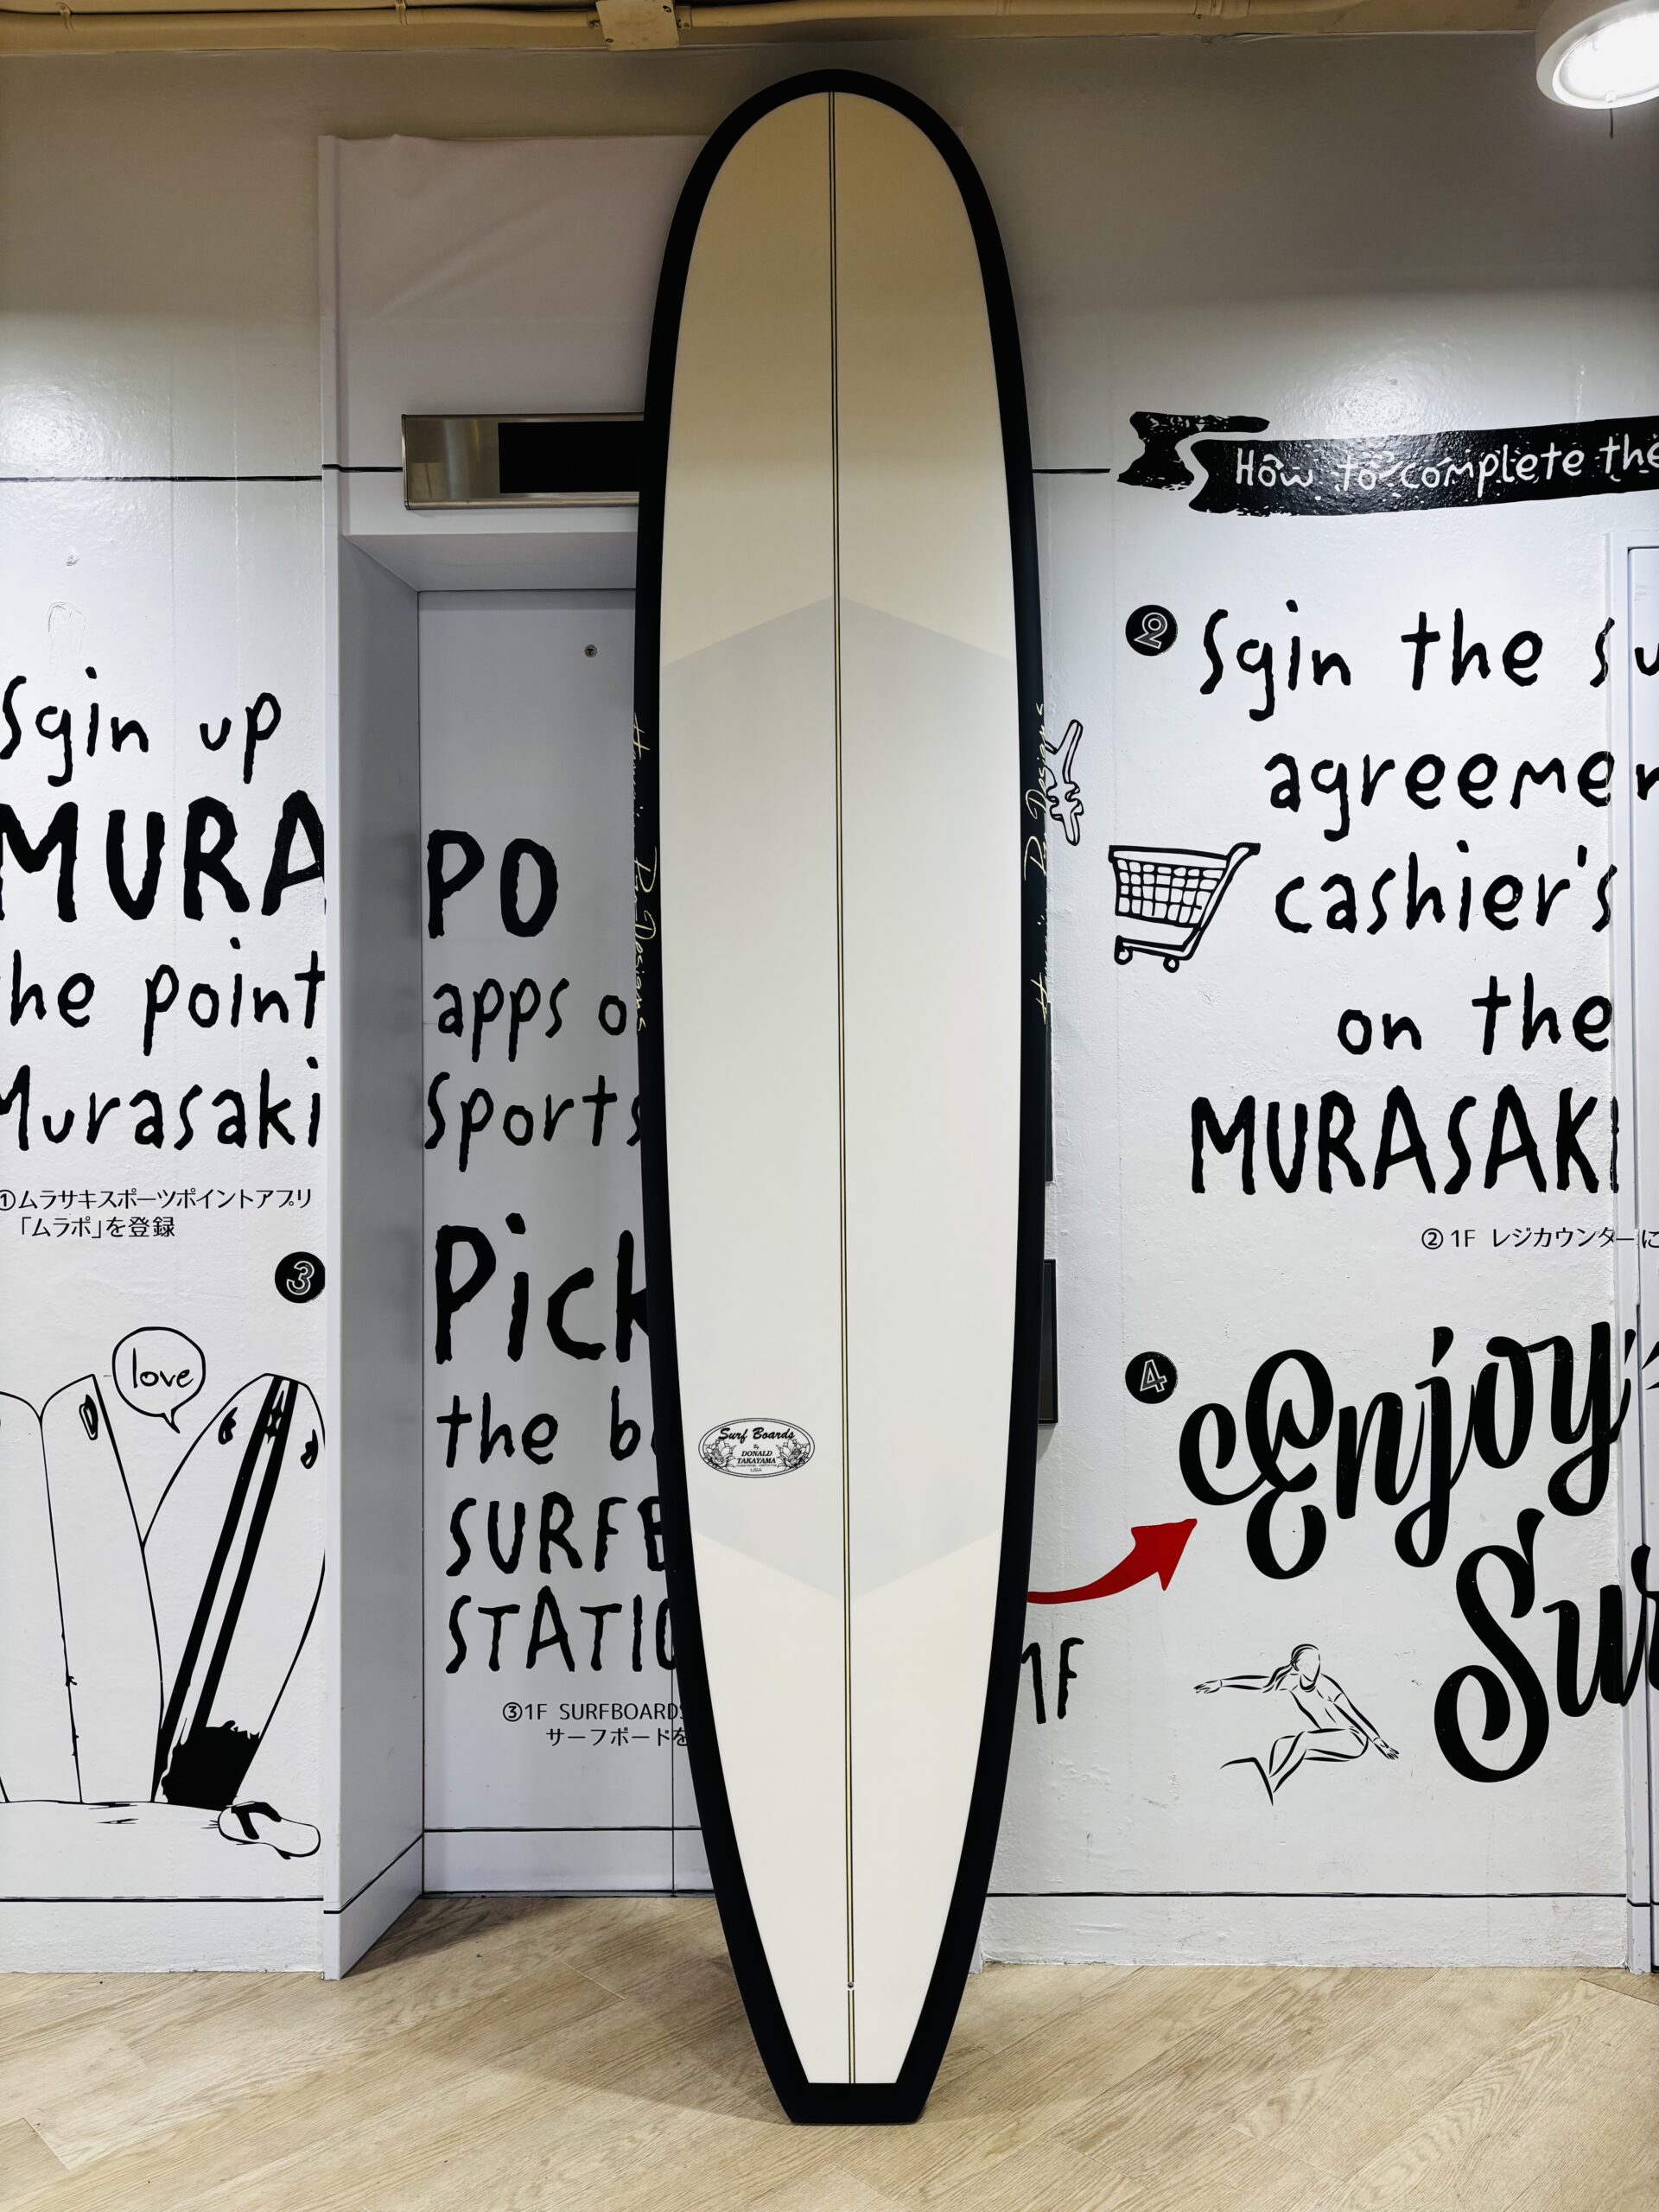 Sgin up
MURA
PO
he point
apps o
Murasaki
Sports
①ムラサキスポーツポイントアプリ
「ムラポ」を登録
3
love
Pick
the b
SURFB
STATIO
③1F SURFBOARDS
サーフボードを
Hawaiian Pro Designs
Surf Boards
By
DONALD
TAKAYAMA
USA
Hawaiian Pro Designs
How to complete the
2
Sgin the su
agreemen
¥
cashier's
on the
MURASAKI
②1F レジカウンターに
4
Enjoy
Sur
1F